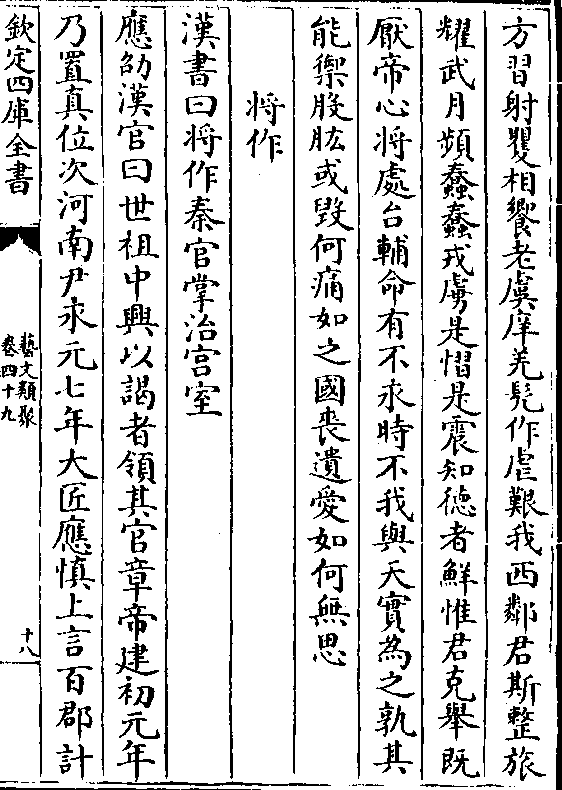 方習射矍相饗老虞庠羌髡作虐艱我西鄰君斯整旅
耀武月頻蠢蠢戎虜是慴是震知徳者鮮惟君克舉既
厭帝心將處台輔命有不永時不我與天實為之孰其
能禦股肱或毀何痛如之國丧遺愛如何無思
將作
漢書曰將作秦官掌治宫室
應劭漢官曰世祖中興以謁者領其官章帝建初元年
乃置真位次河南尹永元七年大匠應慎上言百郡計
欽定四庫全書
藝文類聚
卷四十九
十八